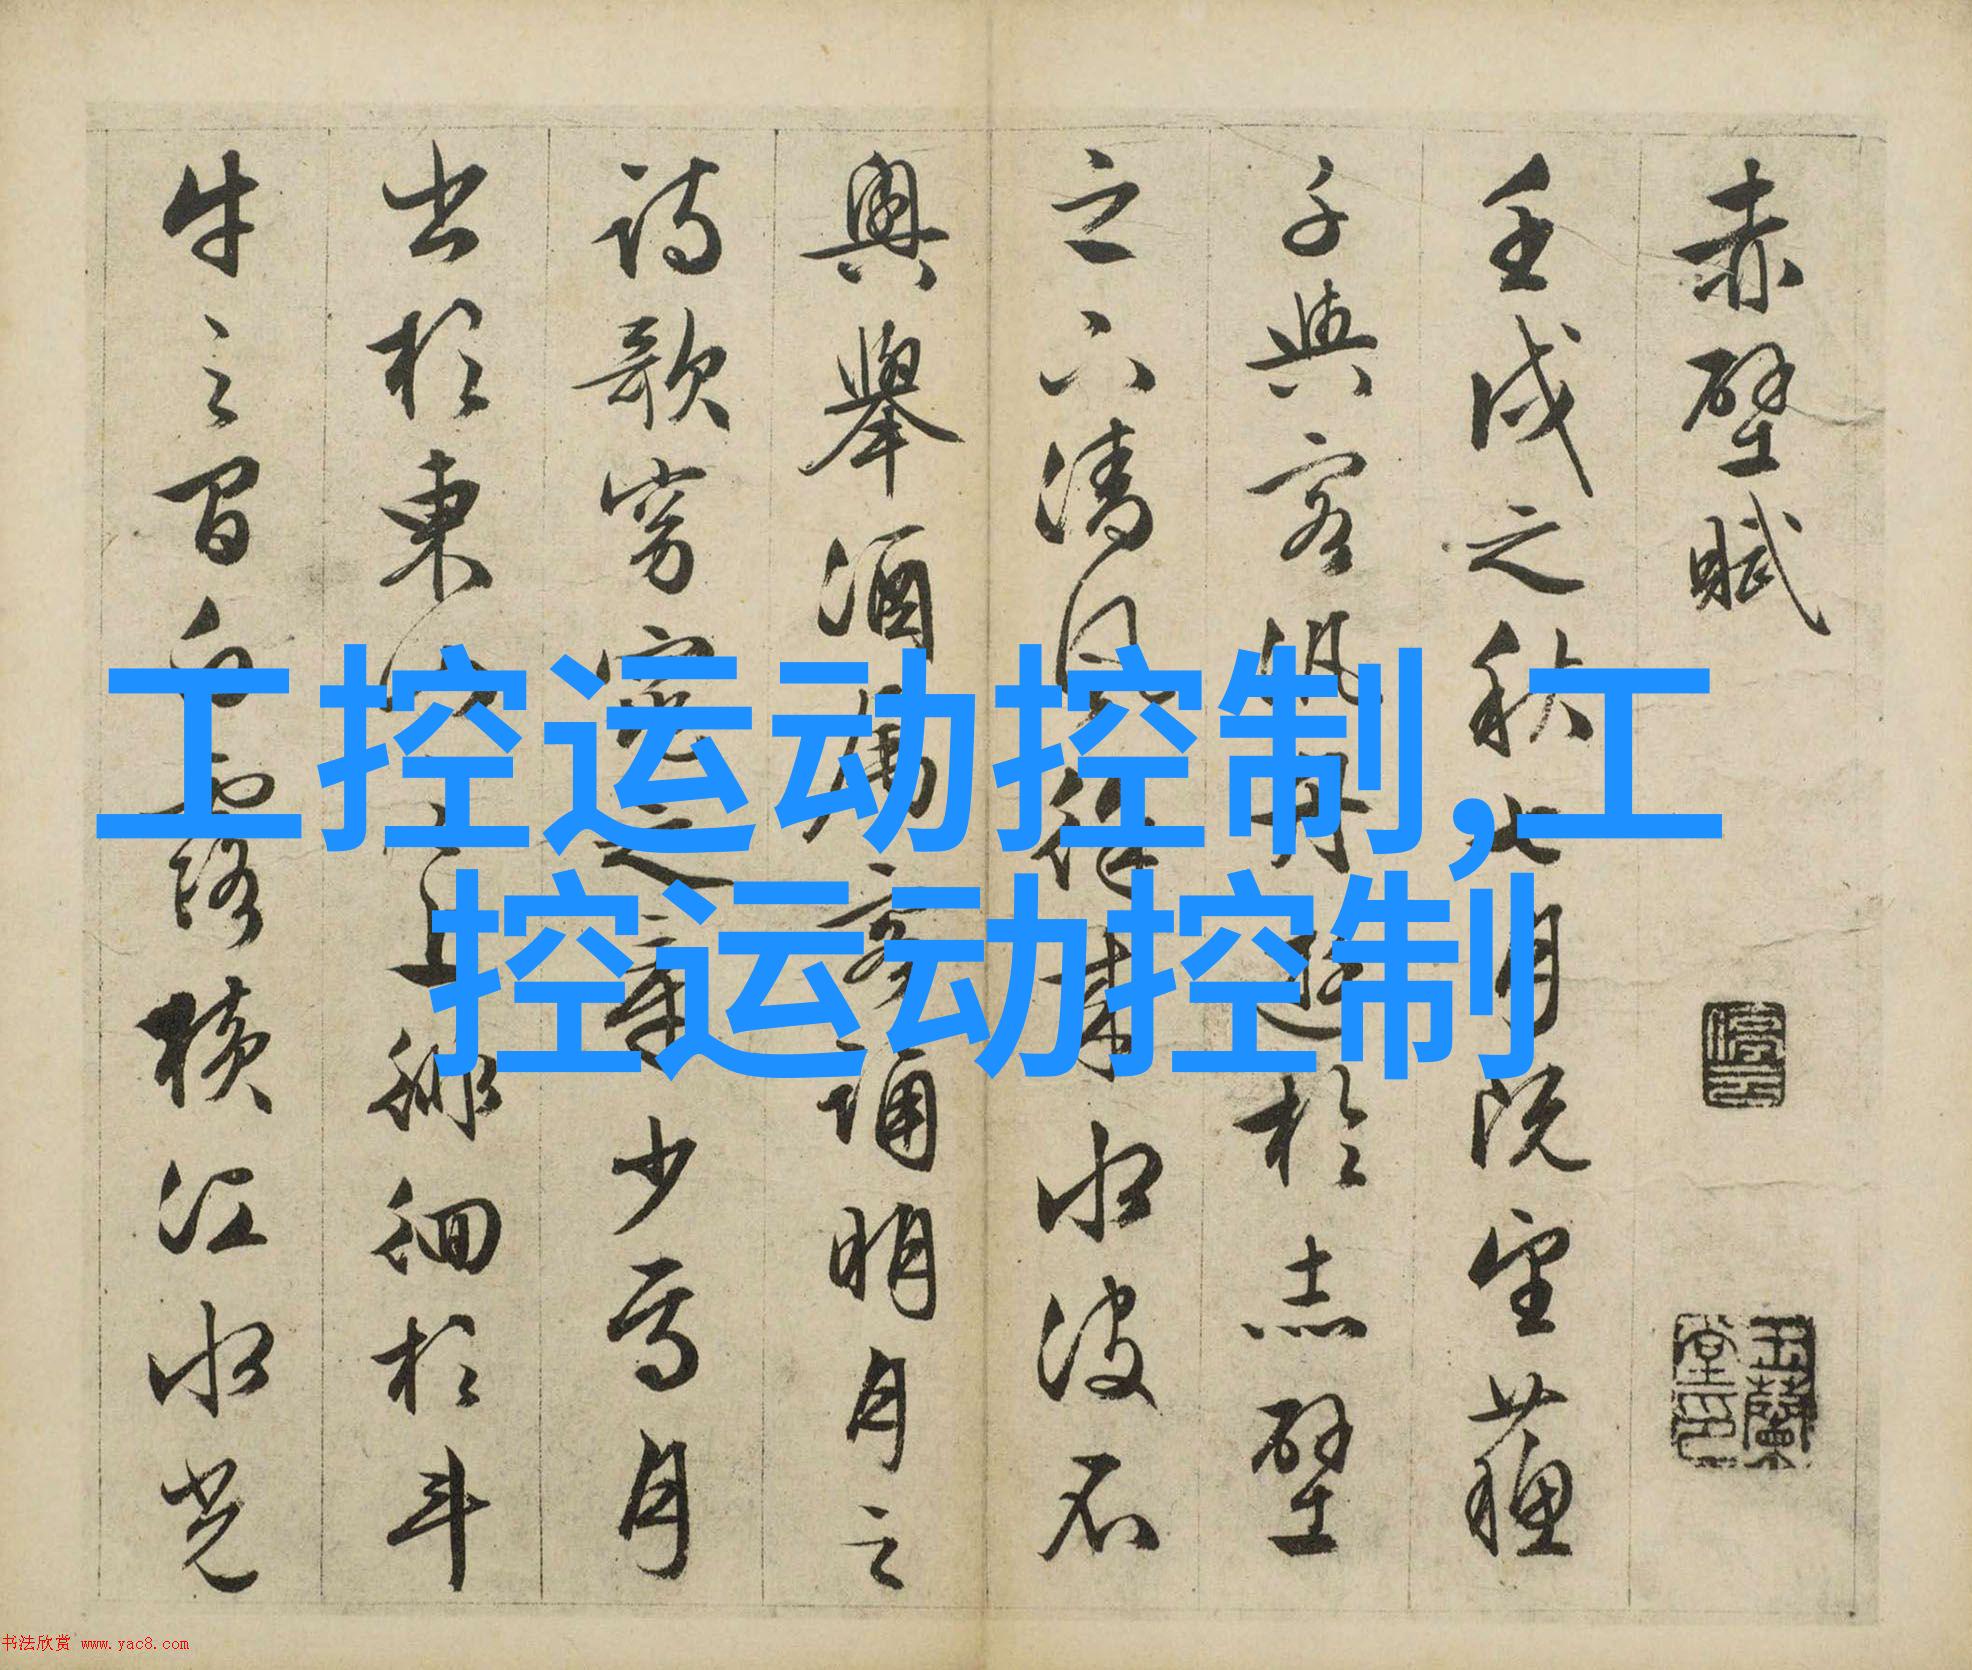 赤壁賦
壬戌之秋七月既望蘓
子與客泛舟遊於赤壁
之下清風徐來水波不
興舉酒屬客誦明月之
詩歌窈窕之章少焉月
出於東山之上徘徊於斗
牛之間白露橫江水光
停雲
玉蘭堂印
工控运动控制,工
控运动控制
书法欣赏 www.yac8.com